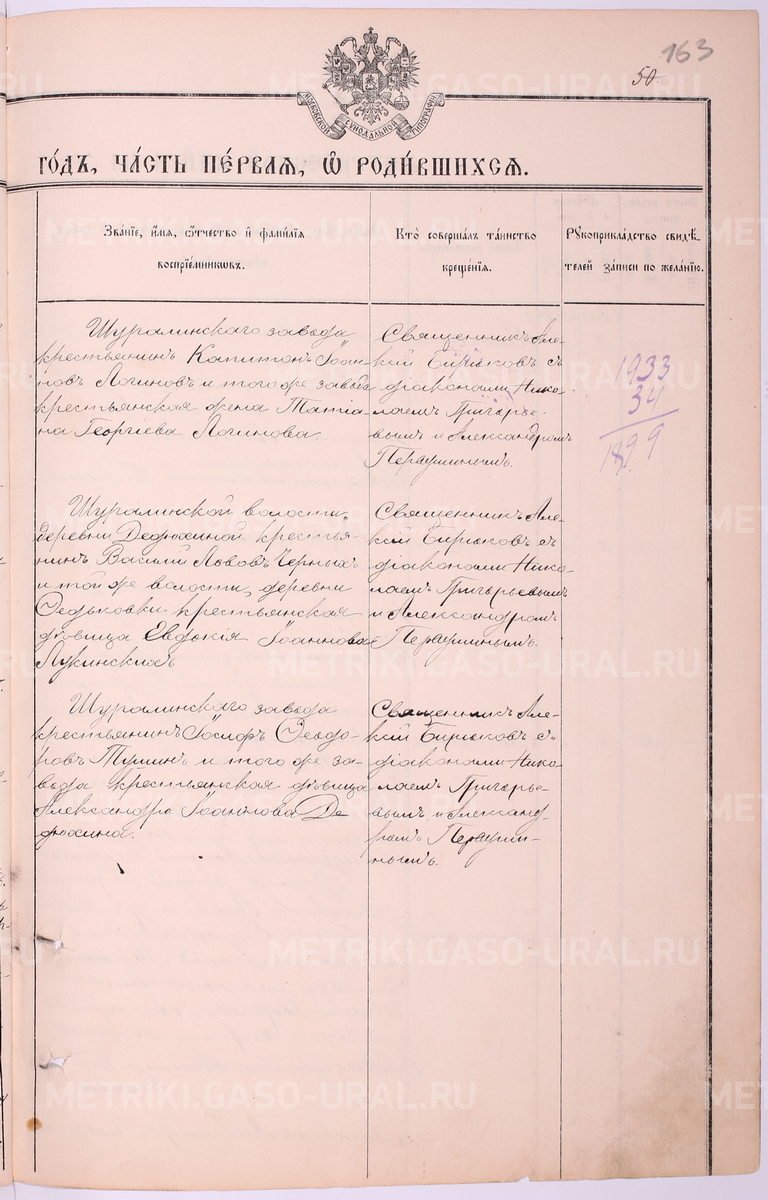 163
50.
МОСКОВСКОЙ СѴНОДАЛЬНОЙ ТИПОГРАФІИ
го́дъ, ча́сть пе́рвая, ѡ роди́вшихся.
Зва́нїе, и҆́мя, ѻ҆́тчество и҆ фами́лїя
воспрїе́мникѡвъ.
Кто̀ соверша́лъ та́инство
креще́нїя.
Рꙋкоприкла́дство свидѣ́-
телей за́писи по жела́нїю.
Шуралинскаго завода
крестьянинъ Капитонъ Іоан-
новъ Логиновъ и того же завода
крестьянская жена Татіа-
на Георгіева Логинова.
Священникъ Але-
ксій Бирюковъ съ
діаконами Нико-
лаемъ Григорье-
вымъ и Александромъ
Первушинымъ.
1933
34
1899
Шуралинской волости,
деревни Дедюхиной крестья-
нинъ Василій Львовъ Черныхъ
и той же волости, деревни
Федьковки крестьянская
дѣвица Евдокія Іоаннова
Лукинскихъ
Священникъ Але-
ксій Бирюковъ съ
діаконами Нико-
лаемъ Григорьевымъ
и Александромъ
Первушинымъ.
Шуралинскаго завода
крестьянинъ Іосифъ Ѳеодо-
ровъ Тупинъ и того же за-
вода крестьянская дѣвица
Александра Іоаннова Де-
дюхина.
Священникъ Але-
ксій Бирюковъ съ
діаконами Нико-
лаемъ Григорье-
вымъ и Александ-
ромъ Первуши-
нымъ.
METRIKI.GASO-URAL.RU